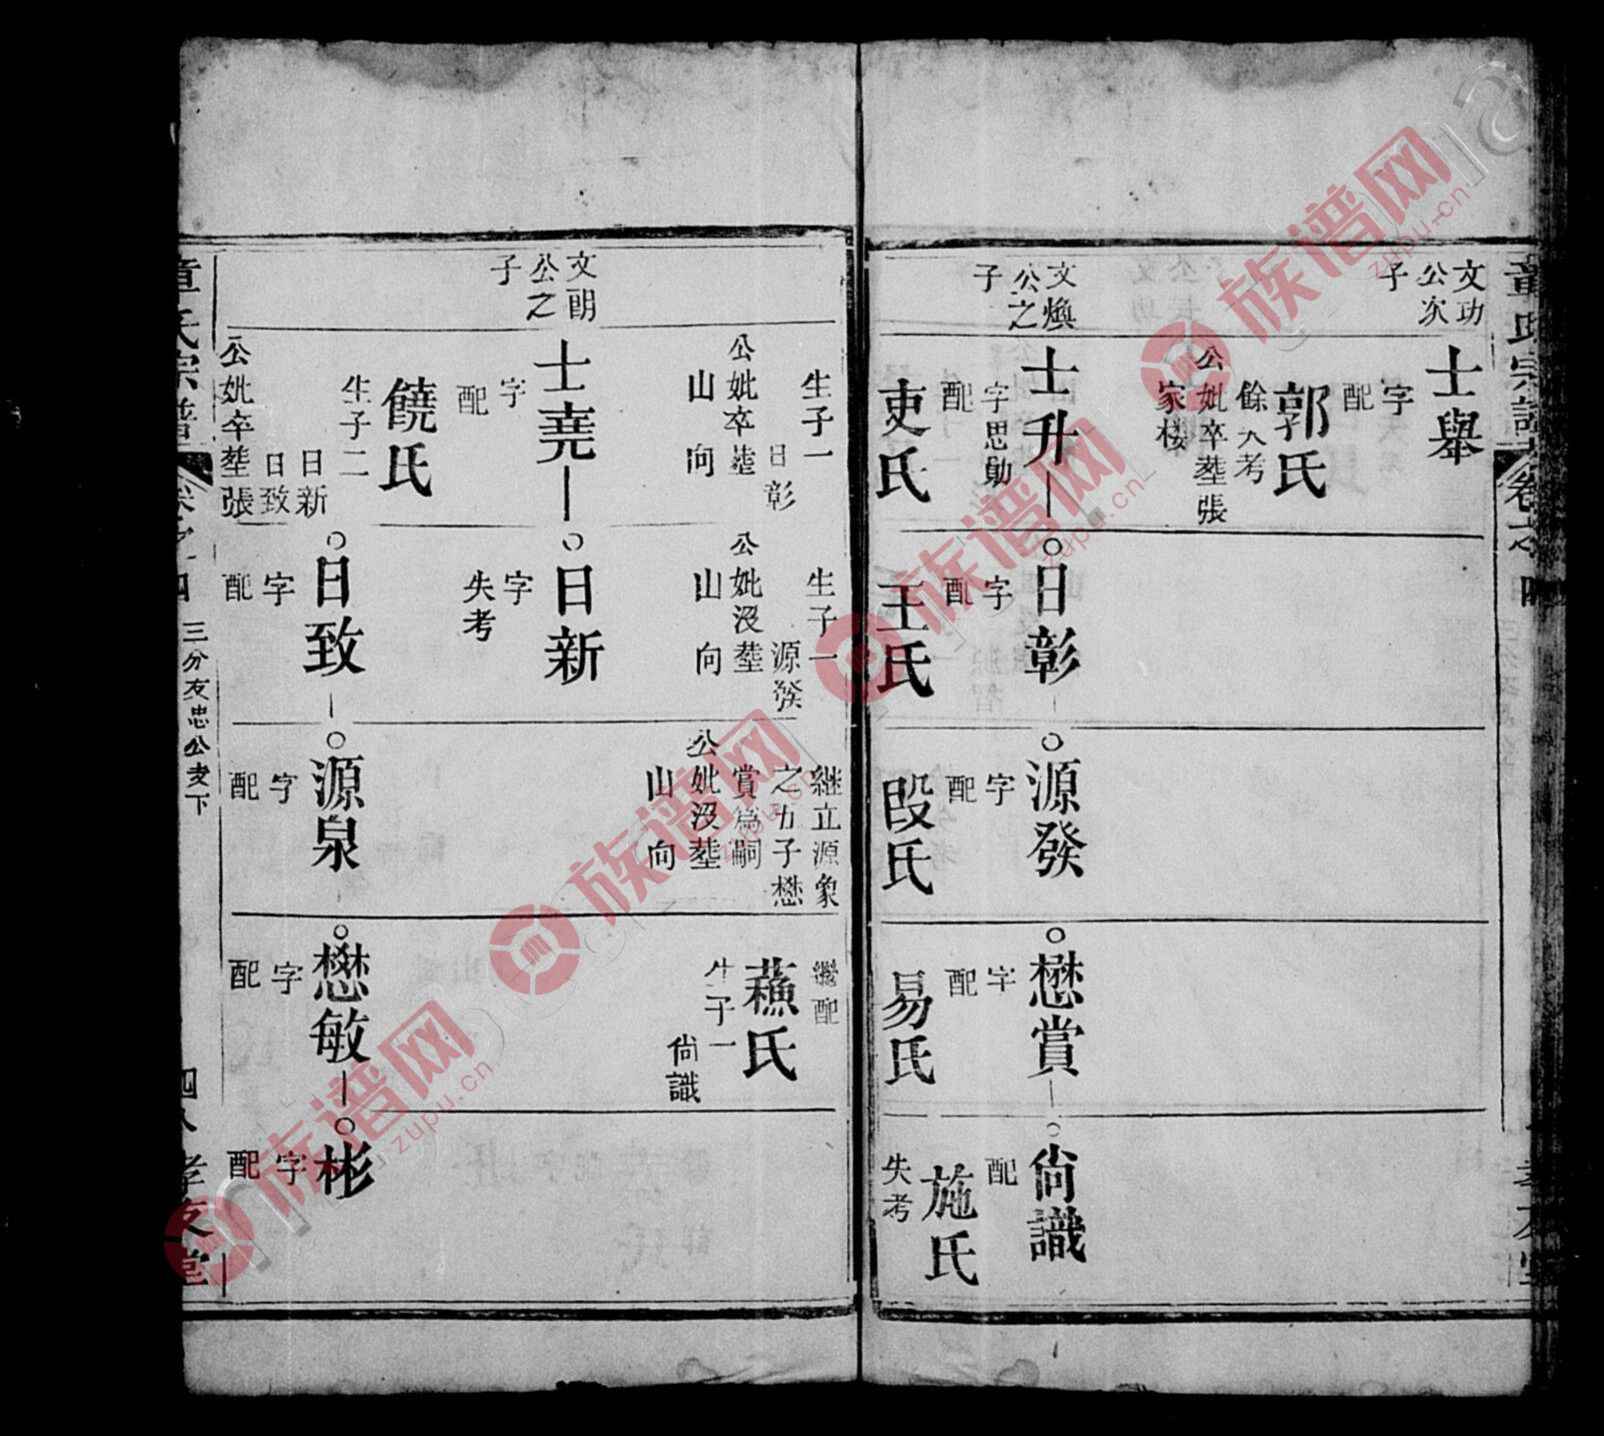 章氏宗譜
卷之四
文功
公次
子
士舉
字
配
郭氏
餘失考
公妣卒塟張
家楼
文煥
公之
子
士升
字思勛
配
吏氏
日彰
字
配
王氏
源發
字
配
段氏
懋賞
字
配
易氏
尙識
配
施氏
失考
生子一
日彰
公妣卒塟
山向
生子一
源發
公妣沒塟
山向
継立源象
之五子懋
賞爲嗣
公妣沒塟
山向
繼配
蘓氏
生子一
尙識
文朗
公之
子
士堯
字
配
饒氏
生子二
日新
日致
公妣卒塟張
日新
字
失考
日致
字
配
源泉
字
配
懋敏
字
配
彬
字
配
章氏宗譜
卷之四
三分友忠公支下
四八
孝友堂
族谱网
zupu.cn
族谱网
zupu.cn
族谱网
zupu.cn
族谱网
zupu.cn